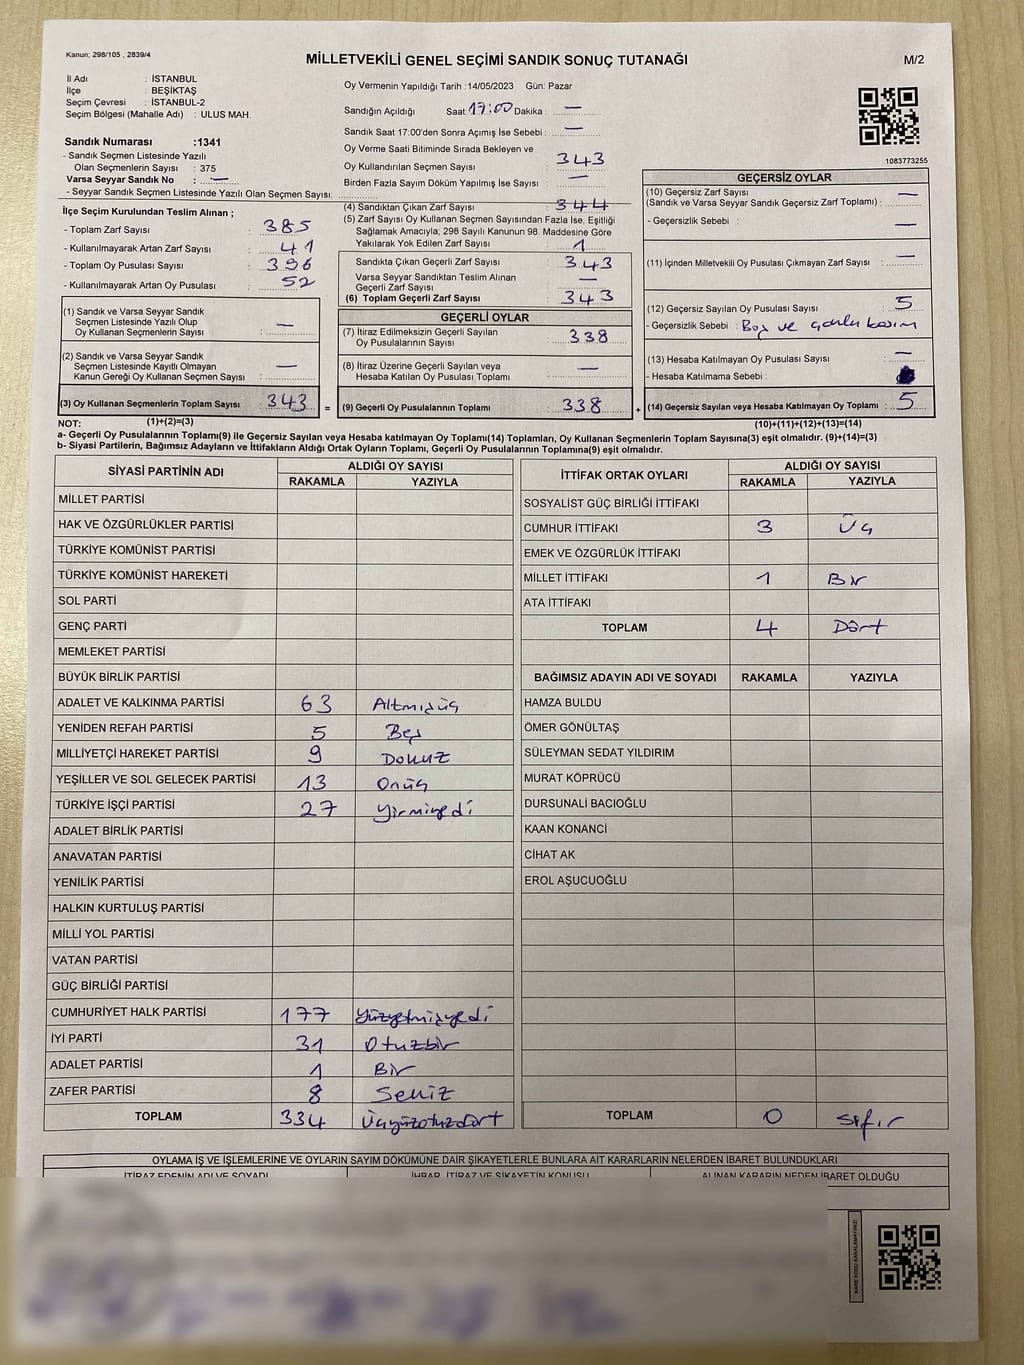 Kanun; 298/105 , 2839/4
MİLLETVEKİLİ GENEL SEÇİMİ SANDIK SONUÇ TUTANAĞI
M/2
İl Adı : İSTANBUL
İlçe : BEŞİKTAŞ
Seçim Çevresi : İSTANBUL-2
Seçim Bölgesi (Mahalle Adı) : ULUS MAH.
Sandık Numarası :1341
- Sandık Seçmen Listesinde Yazılı
Olan Seçmenlerin Sayısı : 375
Varsa Seyyar Sandık No : —
- Seyyar Sandık Seçmen Listesinde Yazılı Olan Seçmen Sayısı:
İlçe Seçim Kurulundan Teslim Alınan ;
- Toplam Zarf Sayısı : 385
- Kullanılmayarak Artan Zarf Sayısı : 41
- Toplam Oy Pusulası Sayısı : 396
- Kullanılmayarak Artan Oy Pusulası : 52
(1) Sandık ve Varsa Seyyar Sandık
Seçmen Listesinde Yazılı Olup
Oy Kullanan Seçmenlerin Sayısı : —
(2) Sandık ve Varsa Seyyar Sandık
Seçmen Listesinde Kayıtlı Olmayan
Kanun Gereği Oy Kullanan Seçmen Sayısı : —
(3) Oy Kullanan Seçmenlerin Toplam Sayısı : 343
Oy Vermenin Yapıldığı Tarih :14/05/2023 Gün: Pazar
Sandığın Açıldığı Saat 17:00 Dakika : —
Sandık Saat 17:00'den Sonra Açımış İse Sebebi : —
Oy Verme Saati Bitiminde Sırada Bekleyen ve
Oy Kullandırılan Seçmen Sayısı : 343
Birden Fazla Sayım Döküm Yapılmış İse Sayısı : —
(4) Sandıktan Çıkan Zarf Sayısı : 344
(5) Zarf Sayısı Oy Kullanan Seçmen Sayısından Fazla İse, Eşitliği
Sağlamak Amacıyla; 298 Sayılı Kanunun 98. Maddesine Göre
Yakılarak Yok Edilen Zarf Sayısı : 1
Sandıkta Çıkan Geçerli Zarf Sayısı : 343
Varsa Seyyar Sandıktan Teslim Alınan
Geçerli Zarf Sayısı : —
(6) Toplam Geçerli Zarf Sayısı : 343
GEÇERLİ OYLAR
(7) İtiraz Edilmeksizin Geçerli Sayılan
Oy Pusulalarının Sayısı : 338
(8) İtiraz Üzerine Geçerli Sayılan veya
Hesaba Katılan Oy Pusulası Toplamı : —
= (9) Geçerli Oy Pusulalarının Toplamı : 338
1083773255
GEÇERSİZ OYLAR
(10) Geçersiz Zarf Sayısı
(Sandık ve Varsa Seyyar Sandık Geçersiz Zarf Toplamı) : —
- Geçersizlik Sebebi : —
(11) İçinden Milletvekili Oy Pusulası Çıkmayan Zarf Sayısı : —
(12) Geçersiz Sayılan Oy Pusulası Sayısı : 5
- Geçersizlik Sebebi : Boş ve
(13) Hesaba Katılmayan Oy Pusulası Sayısı : —
- Hesaba Katılmama Sebebi :
+ (14) Geçersiz Sayılan veya Hesaba Katılmayan Oy Toplamı : 5
NOT: (1)+(2)=(3) (10)+(11)+(12)+(13)=(14)
a- Geçerli Oy Pusulalarının Toplamı(9) ile Geçersiz Sayılan veya Hesaba katılmayan Oy Toplamı(14) Toplamları, Oy Kullanan Seçmenlerin Toplam Sayısına(3) eşit olmalıdır. (9)+(14)=(3)
b- Siyasi Partilerin, Bağımsız Adayların ve İttifakların Aldığı Ortak Oyların Toplamı, Geçerli Oy Pusulalarının Toplamına(9) eşit olmalıdır.
SİYASİ PARTİNİN ADI ALDIĞI OY SAYISI
RAKAMLA YAZIYLA
MİLLET PARTİSİ
HAK VE ÖZGÜRLÜKLER PARTİSİ
TÜRKİYE KOMÜNİST PARTİSİ
TÜRKİYE KOMÜNİST HAREKETİ
SOL PARTİ
GENÇ PARTİ
MEMLEKET PARTİSİ
BÜYÜK BİRLİK PARTİSİ
ADALET VE KALKINMA PARTİSİ 63 Altmışüç
YENİDEN REFAH PARTİSİ 5 Beş
MİLLİYETÇİ HAREKET PARTİSİ 9 Dokuz
YEŞİLLER VE SOL GELECEK PARTİSİ 13 Onüç
TÜRKİYE İŞÇİ PARTİSİ 27 Yirmiyedi
ADALET BİRLİK PARTİSİ
ANAVATAN PARTİSİ
YENİLİK PARTİSİ
HALKIN KURTULUŞ PARTİSİ
MİLLİ YOL PARTİSİ
VATAN PARTİSİ
GÜÇ BİRLİĞİ PARTİSİ
CUMHURİYET HALK PARTİSİ 177 Yüzyetmişyedi
İYİ PARTİ 31 Otuzbir
ADALET PARTİSİ 1 Bir
ZAFER PARTİSİ 8 Sekiz
TOPLAM 334 Üçyüzotuzdört
İTTİFAK ORTAK OYLARI ALDIĞI OY SAYISI
RAKAMLA YAZIYLA
SOSYALİST GÜÇ BİRLİĞİ İTTİFAKI
CUMHUR İTTİFAKI 3 Üç
EMEK VE ÖZGÜRLÜK İTTİFAKI
MİLLET İTTİFAKI 1 Bir
ATA İTTİFAKI
TOPLAM 4 Dört
BAĞIMSIZ ADAYIN ADI VE SOYADI RAKAMLA YAZIYLA
HAMZA BULDU
ÖMER GÖNÜLTAŞ
SÜLEYMAN SEDAT YILDIRIM
MURAT KÖPRÜCÜ
DURSUNALİ BACIOĞLU
KAAN KONANCİ
CİHAT AK
EROL AŞUCUOĞLU
TOPLAM 0 Sıfır
OYLAMA İŞ VE İŞLEMLERİNE VE OYLARIN SAYIM DÖKÜMÜNE DAİR ŞİKAYETLERLE BUNLARA AİT KARARLARIN NELERDEN İBARET BULUNDUKLARI
İTİRAZ EDENİN ADI VE SOYADI İHBAR, İTİRAZ VE ŞİKAYETİN KONUSU ALINAN KARARIN NEDEN İBARET OLDUĞU
KARE KODU KARALAMAYINIZ!